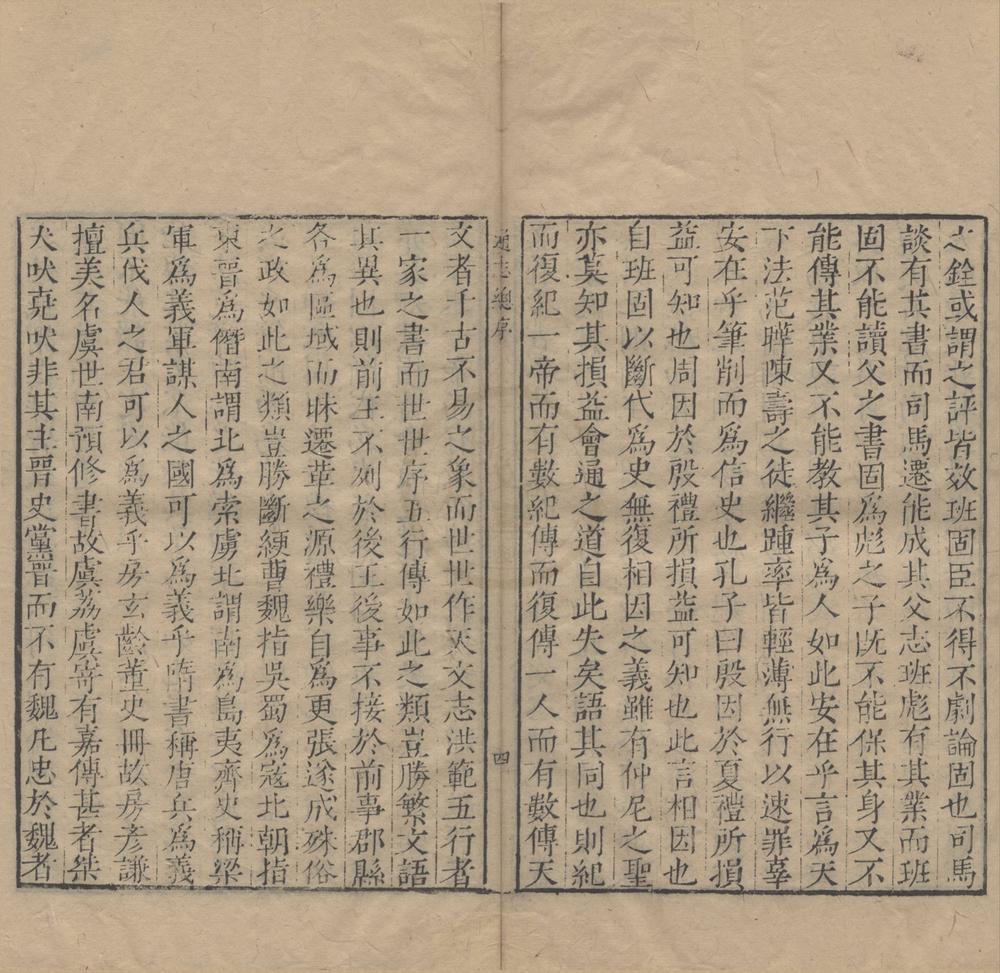 之銓或謂之評皆效班固臣不得不劇論固也司馬
談有其書而司馬遷能成其父志班彪有其業而班
固不能讀父之書固爲彪之子旣不能保其身又不
能傳其業又不能教其子爲人如此安在乎言爲天
下法范曄陳壽之徒繼踵率皆輕薄無行以速罪辜
安在乎筆削而爲信史也孔子曰殷因於夏禮所損
益可知也周因於殷禮所損益可知也此言相因也
自班固以斷代爲史無復相因之義雖有仲尼之聖
亦莫知其損益會通之道自此失矣語其同也則紀
而復紀一帝而有數紀傳而復傳一人而有數傳天
通志總序
四
文者千古不易之象而世世作天文志洪範五行者
一家之書而世世序五行傳如此之類豈勝繁文語
其異也則前王不列於後王後事不接於前事郡縣
各爲區域而昧遷革之源禮樂自爲更張遂成殊俗
之政如此之類豈勝斷綆曹魏指吳蜀爲寇北朝指
東晉爲僭南謂北爲索虜北謂南爲島夷齊史稱梁
軍爲義軍謀人之國可以爲義乎隋書稱唐兵爲義
兵伐人之君可以爲義乎房玄齡董史冊故房彥謙
擅美名虞世南預修書故虞荔虞寄有嘉傳甚者桀
犬吠堯吠非其主晉史黨晉而不有魏凡忠於魏者